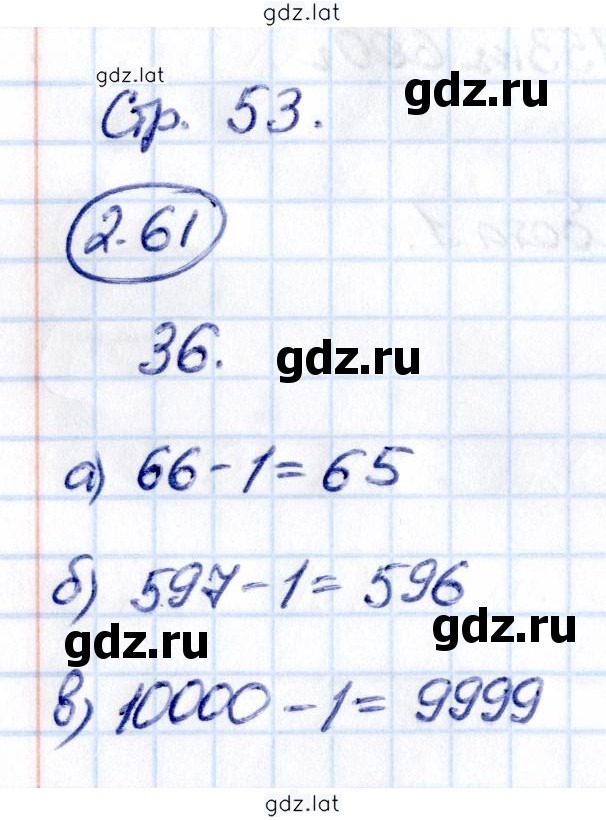 gdz.lat
gdz.lat
gdz.ru
Стр. 53.
2.61
36.
gdz.ru
а) 66 - 1 = 65
б) 597 - 1 = 596
gdz.ru
gdz.ru
в) 10000 - 1 = 9999
gdz.lat